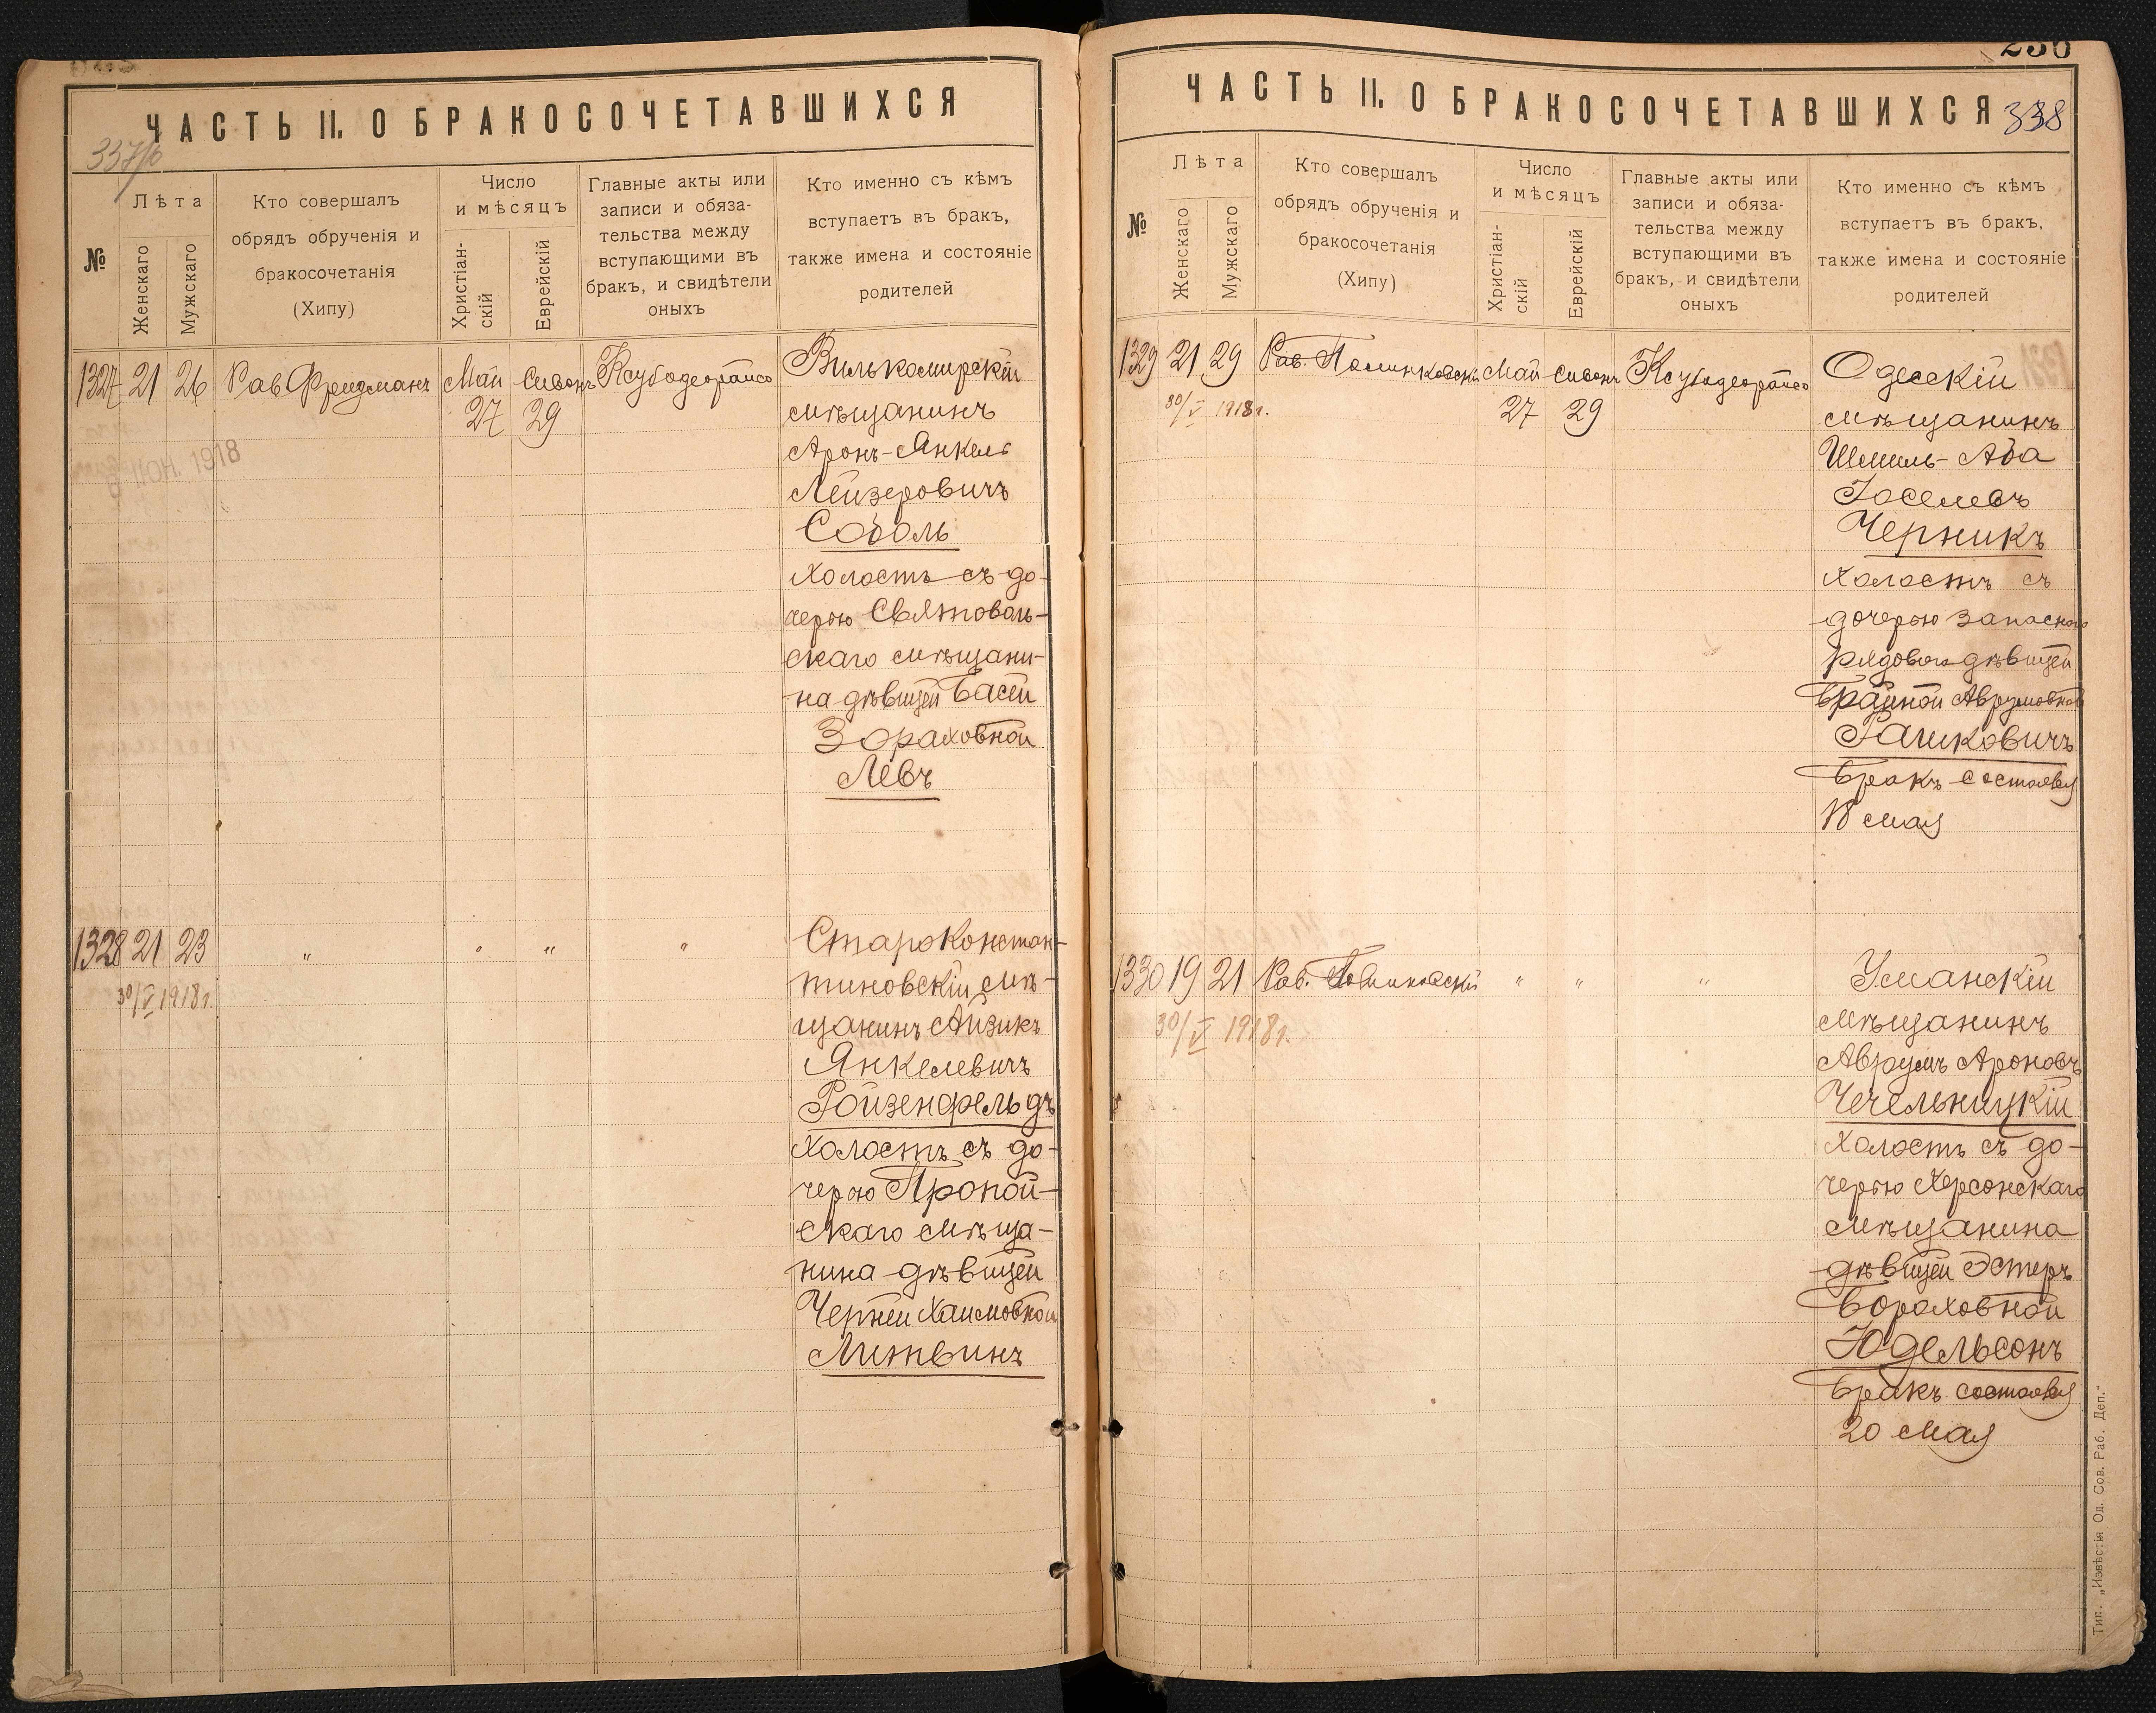 ЧАСТЬ II. О БРАКОСОЧЕТАВШИХСЯ
337/б
№
Лѣта
Женскаго
Мужскаго
Кто совершалъ
обрядъ обрученія и
бракосочетанія
(Хипу)
Число
и мѣсяцъ
Христіан-
скій
Еврейскій
Главные акты или
записи и обяза-
тельства между
вступающими въ
бракъ, и свидѣтели
оныхъ
Кто именно съ кѣмъ
вступаетъ въ бракъ,
также имена и состояніе
родителей
1327 21 26 Рав Фридманъ Май Сивонъ Ксубодеорайсо
27 29
ІЮН. 1918
Вилькомирскій
мѣщанинъ
Аронъ-Янкель
Лейзеровичъ
Соболь
холостъ съ до-
черью Святополь-
скаго мѣщани-
на дѣвицей Басей
Зораховной
Левъ
1328 21 23 „ „ „ „
30/V 1918 г.
Староконстан-
тиновскій мѣ-
щанинъ Айзикъ
Янкелевичъ
Ройзенфельдъ
холостъ съ до-
черью Пропой-
скаго мѣща-
нина дѣвицей
Черней Хаимовной
Литвинъ
230
ЧАСТЬ II. О БРАКОСОЧЕТАВШИХСЯ
338
№
Лѣта
Женскаго
Мужскаго
Кто совершалъ
обрядъ обрученія и
бракосочетанія
(Хипу)
Число
и мѣсяцъ
Христіан-
скій
Еврейскій
Главные акты или
записи и обяза-
тельства между
вступающими въ
бракъ, и свидѣтели
оныхъ
Кто именно съ кѣмъ
вступаетъ въ бракъ,
также имена и состояніе
родителей
1329 21 29 Рав. Май Сивонъ Ксубодеорайсо
30/V 1918 г. 27 29
Одесскій
мѣщанинъ
Шмиль-Аба
Іоселевъ
Черникъ
холостъ съ
дочерью запаснаго
рядового дѣвицей
Брайной Аврумовной
Рашковичъ
Бракъ состоялся
18 мая
1330 19 21 Рав. „ „ „
30/V 1918 г.
Уманскій
мѣщанинъ
Аврумъ Ароновъ
Чечельницкій
холостъ съ до-
черью Херсонскаго
мѣщанина
дѣвицей Эстеръ
Бороховной
Юдельсонъ
Бракъ состоялся
20 мая
Тип. „Извѣстія Од. Сов. Раб. Деп.“